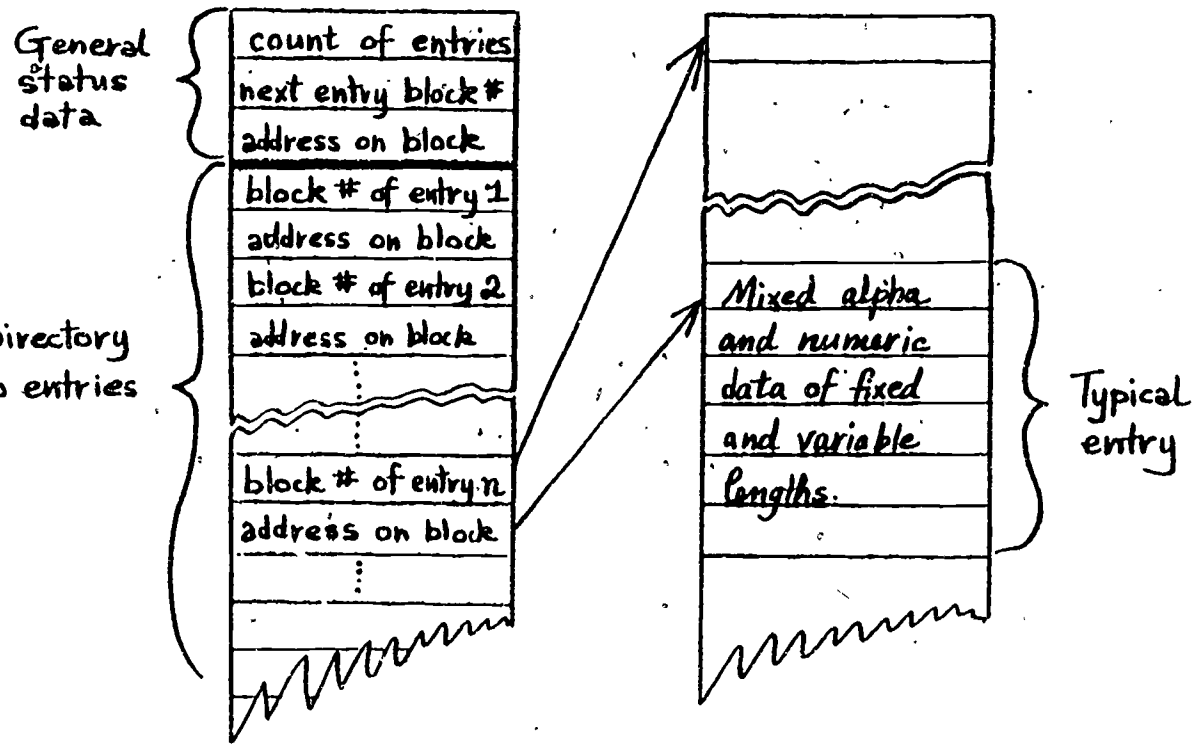 General
status
data
count of entries
next entry block #
address on block
Directory
o entries
block # of entry 1
address on block
block # of entry 2
address on block
block # of entry n
address on block
Mixed alpha
and numeric
data of fixed
and variable
lengths.
Typical
entry